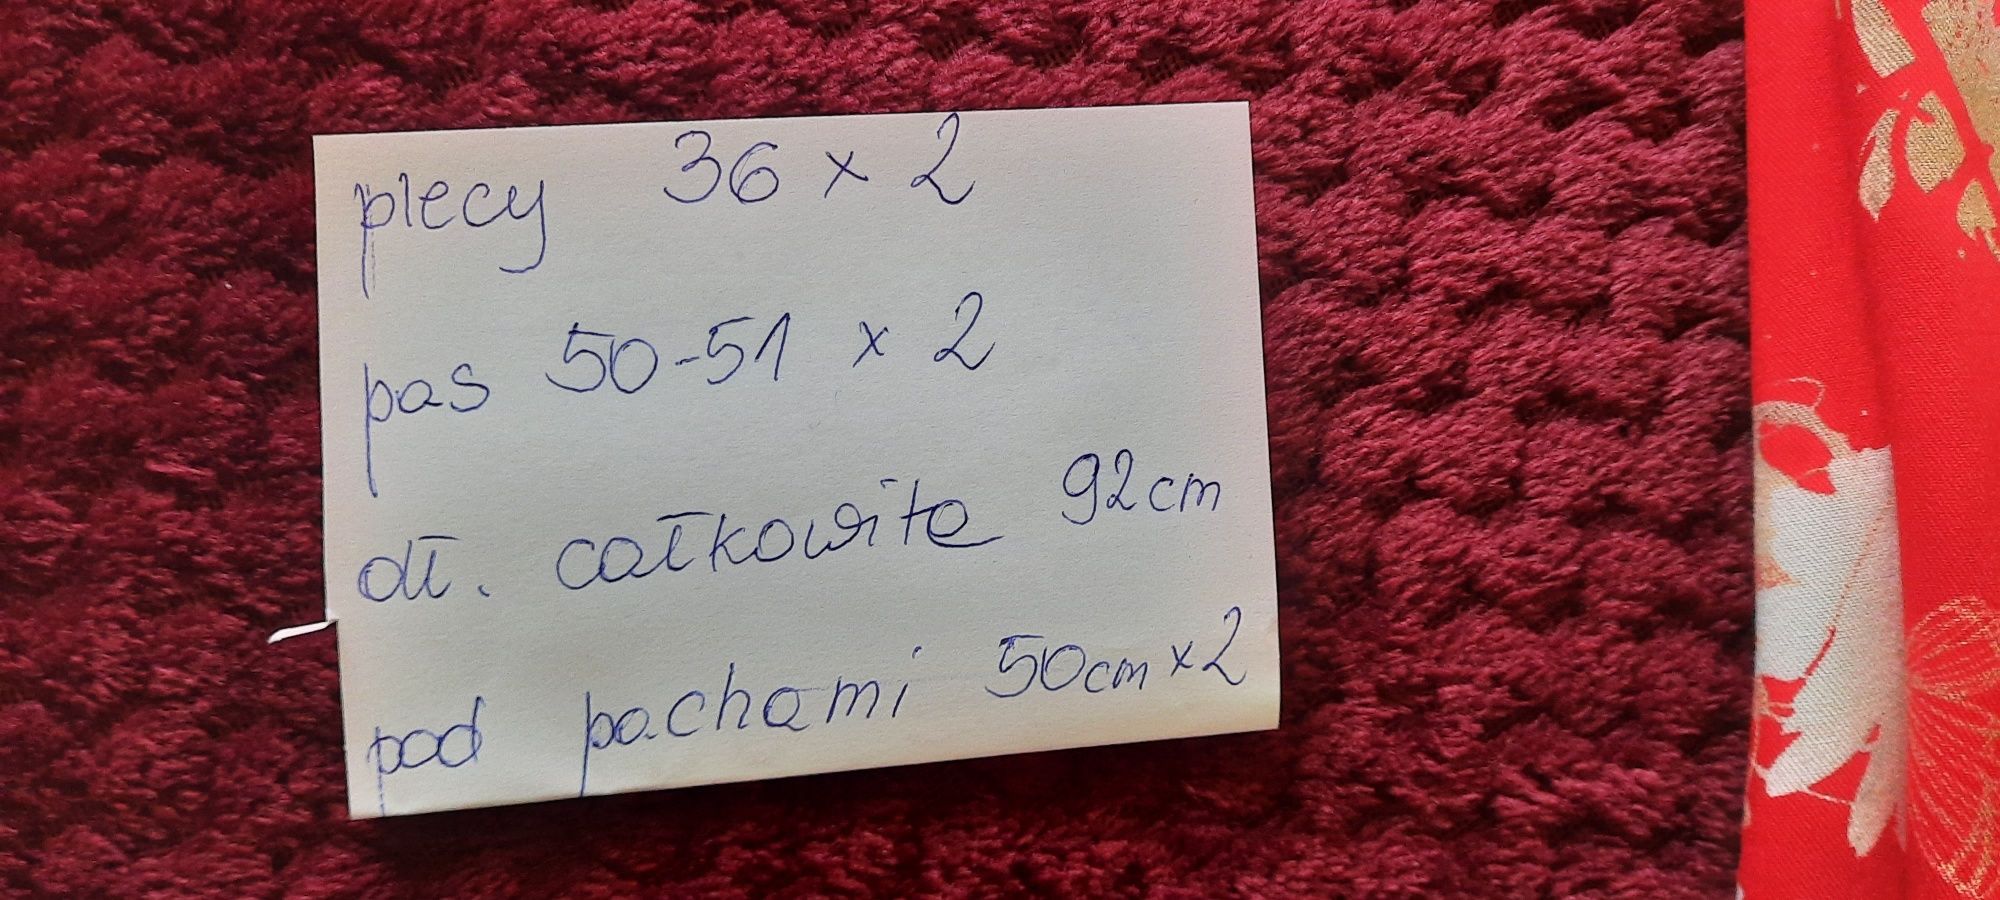 plecy 36 x 2
pas 50-51 x 2
dł. całkowita 92cm
pod pachami 50cm x 2